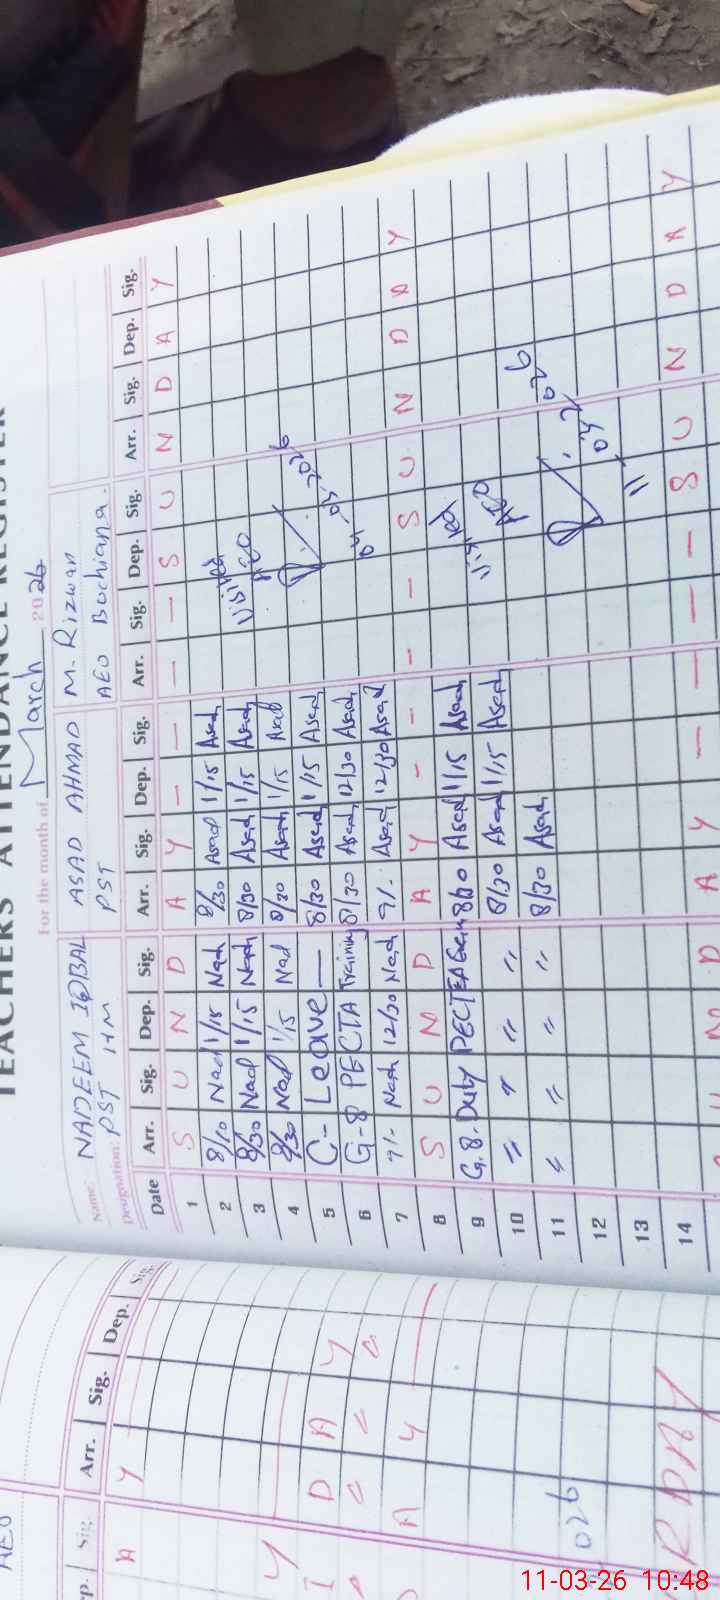 TEACHERS ATTENDANCE REGISTER
For the month of March 2026
Name: NADEEM IQBAL ASAD AHMAD M. Rizwan
Designation: PST HM PST AEO Buchiana.
Date Arr. Sig. Dep. Sig. Arr. Sig. Dep. Sig. Arr. Sig. Dep. Sig. Arr. Sig. Dep. Sig.
1 S U N D A Y — — — — S U N D A Y
2 8/10 Nad 1/15 Nad 8/30 Asad 1/15 Asad Visited
3 8/30 Nad 1/15 Nad 8/30 Asad 1/15 Asad AEO
4 8/30 Nad 1/15 Nad 8/30 Asad 1/15 Asad
5 C- Leave — 8/30 Asad 1/15 Asad 04-03-2026
6 G-8 PECTA Training 8/30 Asad 12/30 Asad
7 9/- Nad 12/30 Nad 9/- Asad 12/30 Asad
8 S U N D A Y - - - — S U N D A Y
9 G.8. Duty PECTA Exam 8/30 Asad 1/15 Asad Visited
10 " " " " 8/30 Asad 1/15 Asad AEO
11 " " " " 8/30 Asad
12
13
14 S U N D A Y — — — — S U N D A Y
AEO
Dep. Sig. Arr. Sig. Dep. Sig.
A Y
Y
I D A Y
" " "
A Y
026
R D A Y
11-03-26 10:48